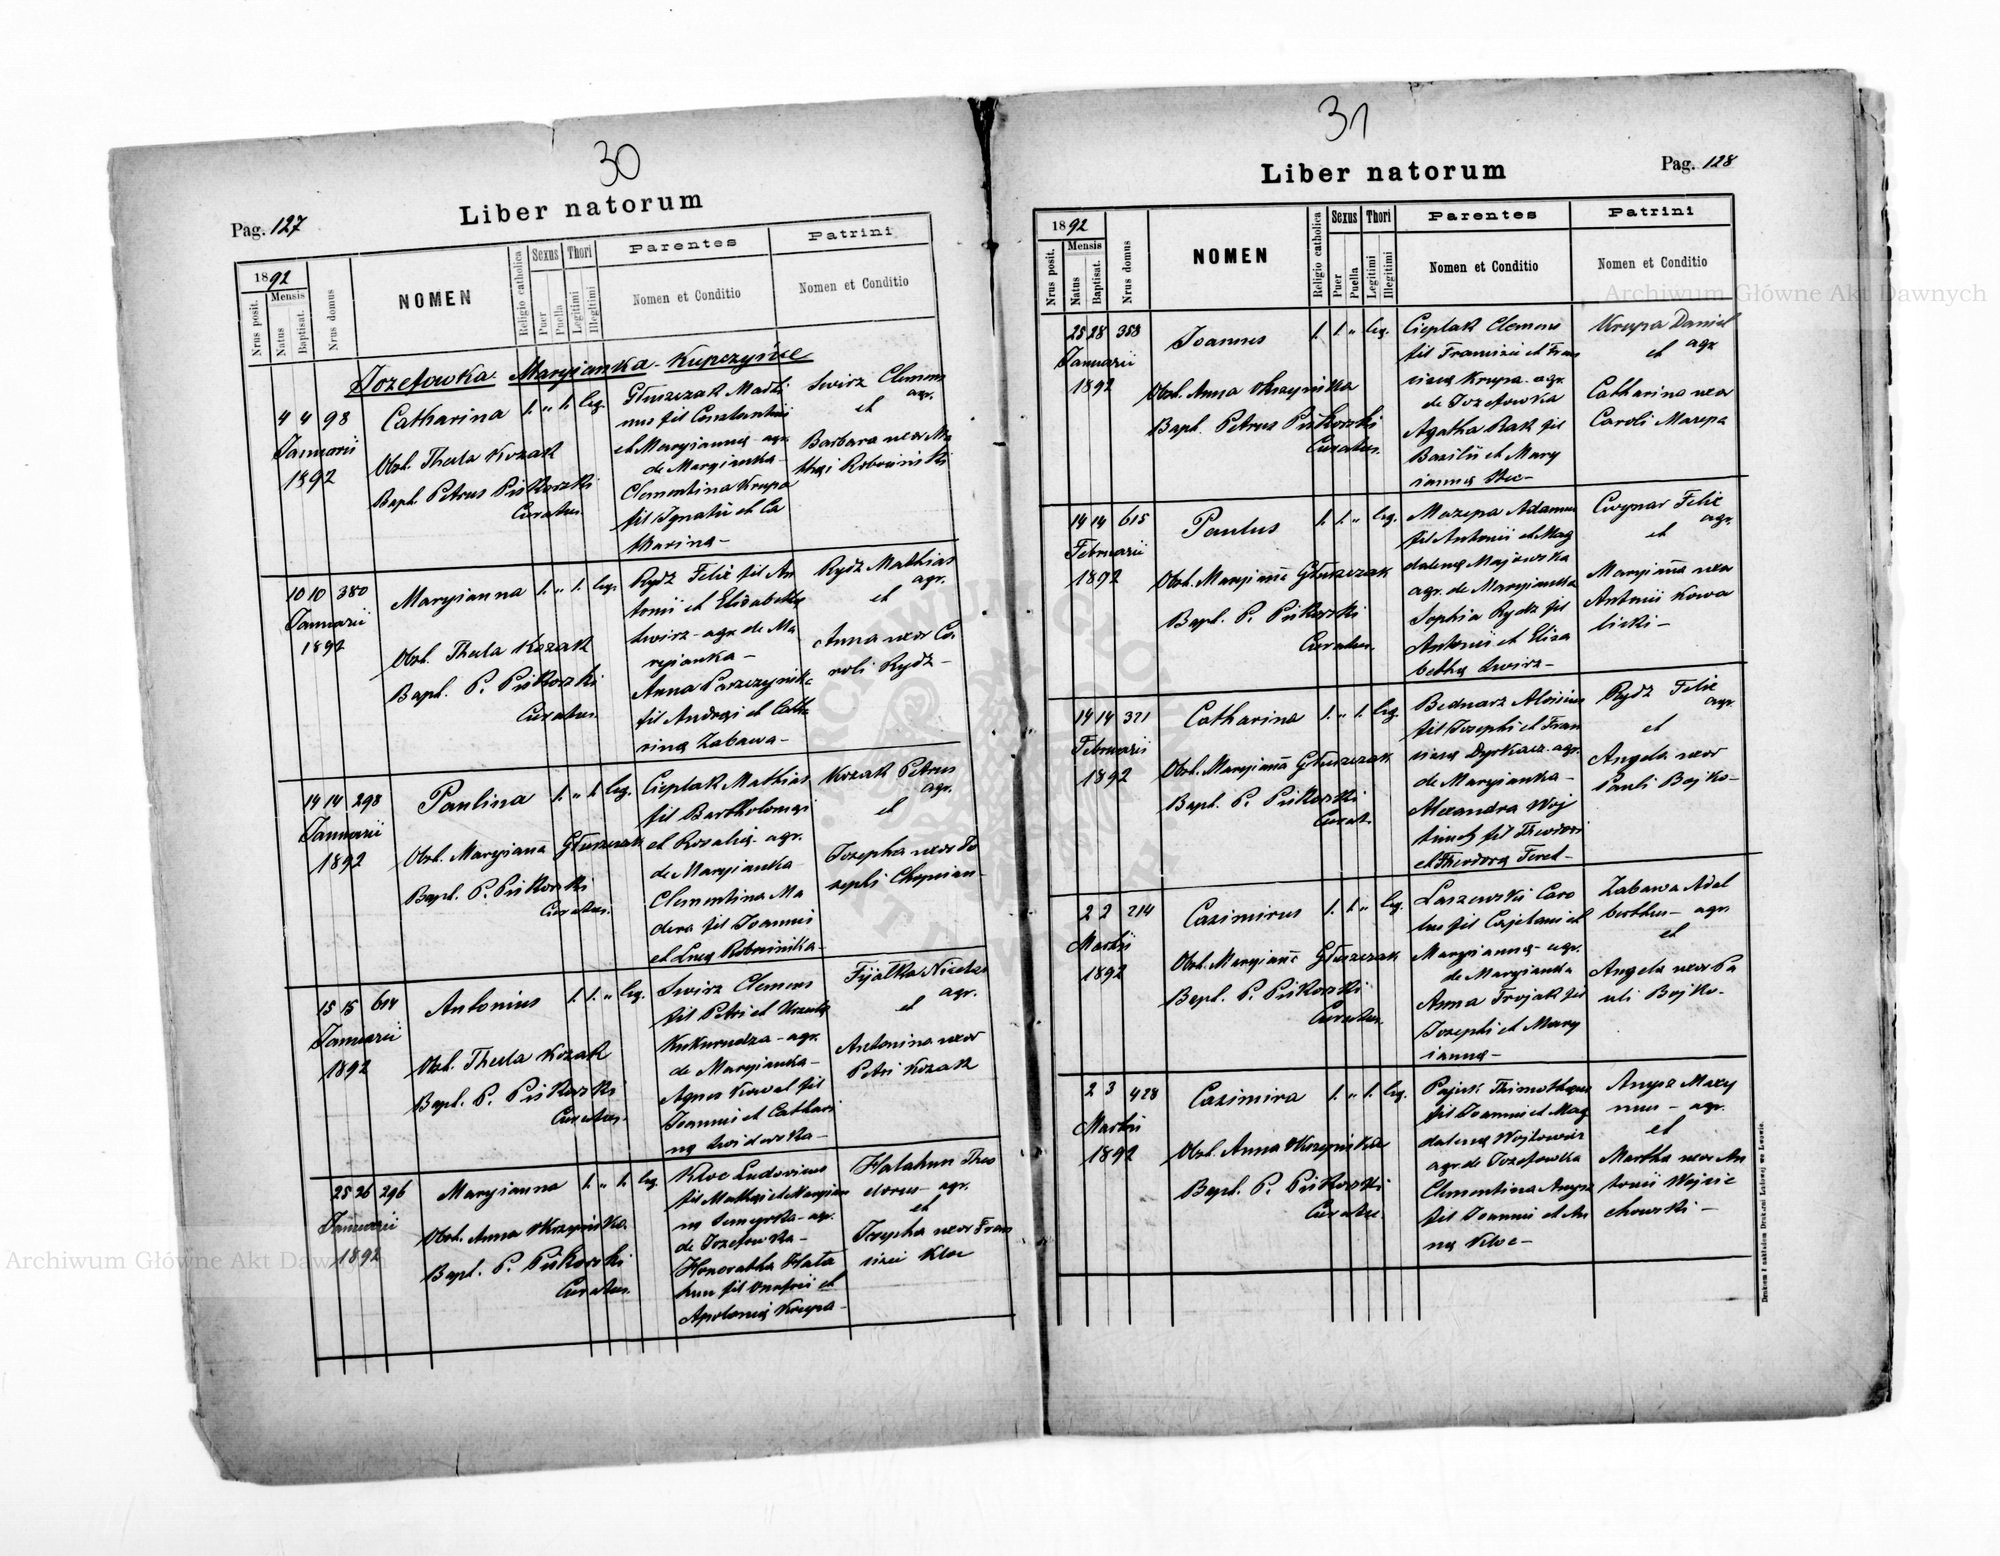 30
Pag. 127
Liber natorum
1892
Nrus posit.
Mensis
Natus
Baptisat.
Nrus domus
NOMEN
Religio catholica
Sexus
Puer
Puella
Thori
Legitimi
Illegitimi
Parentes
Nomen et Conditio
Patrini
Nomen et Conditio
Jozefowka Maryianka - Kupczyńce
4 4 98
Januarii
1892
Catharina
Obst. Thecla Kozak
Bapt. Petrus Piskorski
Curatus.
1. " 1. leg.
Głuszczak Marti
nus fil Constantini
et Maryianna agr.
de Maryianka -
Clementina Krupa
fil Ignatii et Ca
tharina -
Swirz Clemens
agr.
et
Barbara uxor Ma
10 10 380
Januarii
1892
Maryianna
Obst. Thecla Kozak
Bapt. P. Piskorski
Curatus.
1. " 1. leg.
Rydz Felix fil An
tonii et Elisabetha
Swirz - agr. de Ma
ryianka -
fil Andrei et Catha
rina Zabawa -
Rydz Mathias
agr.
et
Anna uxor Ca
roli Rydz -
14 14 298
Januarii
1892
Paulina
Obst. Maryiana Głuszczak
Bapt. P. Piskorski
Curatus.
1. " 1. leg.
Cieplak Mathias
fil Bartholomei
et Rosalia agr.
de Maryianka
Clementina Ma
dera fil Joannis
Kozak Petrus
agr.
et
Josepha uxor Jo
sephi
15 15 614
Januarii
1892
Antonius
Obst. Thecla Kozak
Bapt. P. Piskorski
Curatus.
1. 1. " leg.
Swirz Clemens
fil Petri et
Kukurudza - agr.
de Maryianka -
Agnes Kowal fil
Joannis et Cathari
na
Fijałka Nicolas
agr.
et
Antonina uxor
Petri Kozak
25 26 296
Januarii
1892
Maryianna
Obst. Anna
Bapt. P. Piskorski
Curatus.
1. " 1. leg.
Kloc Ludovicus
fil Mathei et Maryian
na
de Jozefowka -
Honoratha Hała
hun fil Onufrii et
Apolonia Krupa -
Hałahun Theo
dorus - agr.
et
Josepha uxor Fran
cisci Kloc
31
Liber natorum
Pag. 128
1892
Nrus posit.
Mensis
Natus
Baptisat.
Nrus domus
NOMEN
Religio catholica
Sexus
Puer
Puella
Thori
Legitimi
Illegitimi
Parentes
Nomen et Conditio
Patrini
Nomen et Conditio
25 28 358
Januarii
1892
Joannes
Obst. Anna
Bapt. Petrus Piskorski
Curatus.
1. 1. " leg.
Cieplak Clemens
fil Francisci et Fran
cisca Krupa - agr.
de Jozefowka
Agatha Rak fil
Basilii et Mary
ianna
Krupa Daniel
agr.
et
Catharina uxor
Caroli Mazepa
14 14 615
Februarii
1892
Paulus
Obst. Maryiana Głuszczak
Bapt. P. Piskorski
Curatus.
1. 1. " leg.
Mazepa Adamus
fil Antonii et Mag
dalena Majewska
agr. de Maryianka
Sophia Rydz fil
Antonii et Elisa
betha Swirz -
Cwynar Felix
agr.
et
Maryiana uxor
Antonii Kowa
licki -
14 14 371
Februarii
1892
Catharina
Obst. Maryiana Głuszczak
Bapt. P. Piskorski
Curat.
1. " 1. leg.
Bednarz Aloisius
fil Josephi et Fran
cisca Dyrkacz - agr.
de Maryianka -
Alexandra Woj
fil Theodori
et Theodora Feret -
Rydz Felix
agr.
et
Angela uxor
Pauli Bojko -
2 2 214
Martii
1892
Casimirus
Obst. Maryiana Głuszczak
Bapt. P. Piskorski
Curatus.
1. 1. " leg.
Laszewski Caro
lus fil Cajetani et
Maryianna - agr.
de Maryianka
Anna Trojak fil
Josephi et Mary
ianna -
Zabawa Adal
berthus - agr.
et
Angela uxor Pa
uli Bojko -
2 3 428
Martii
1892
Casimira
Obst. Anna
Bapt. P. Piskorski
Curatus.
1. " 1. leg.
fil Joannis et Mag
dalena Wojtowicz
agr. de Jozefowka
Clementina Anysz
fil Joannis et An
na Kloc -
Anysz Maxy
mus - agr.
et
Martha uxor An
tonii Wojcie
chowski -
Drukiem i nakładem Drukarni Ludowej we Lwowie.
Archiwum Główne Akt Dawnych
Archiwum Główne Akt Dawnych